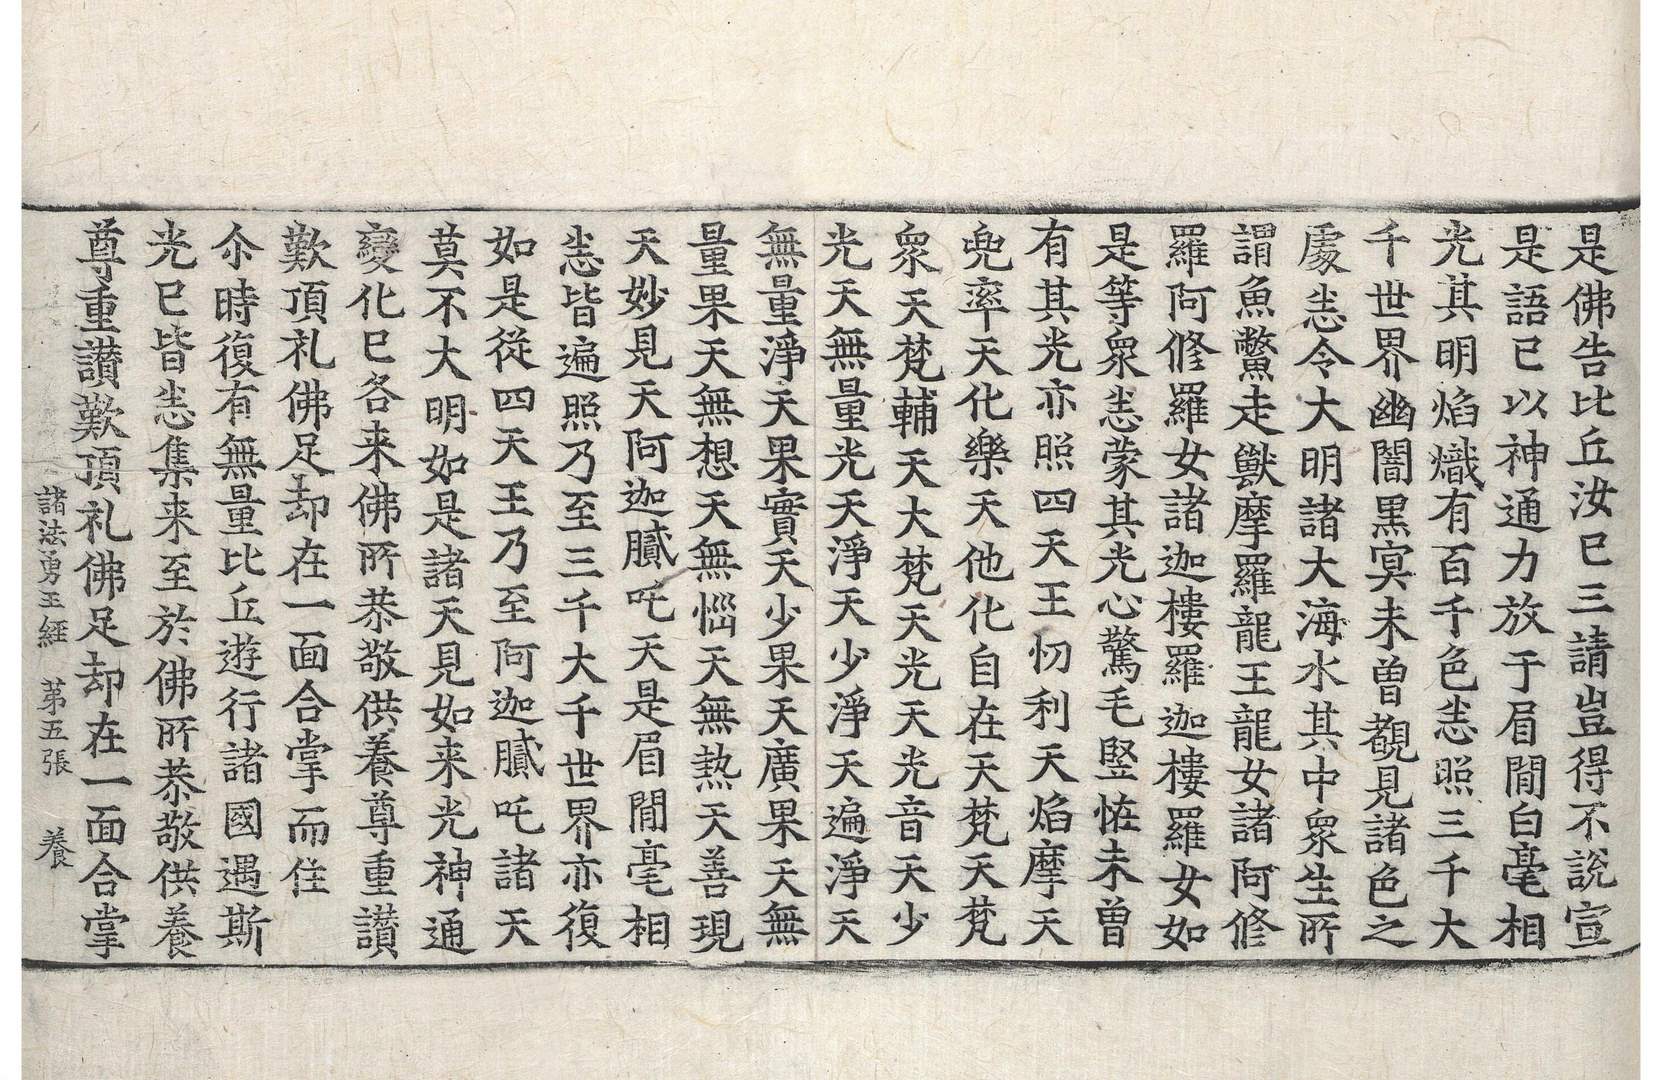 是佛告比丘汝已三請豈得不說宣
是語已以神通力放于眉間白毫相
光其明焰熾有百千色悉照三千大
千世界幽闇黑冥未曾覩見諸色之
處悉令大明諸大海水其中衆生所
謂魚鱉走獸摩羅龍王龍女諸阿修
羅阿修羅女諸迦樓羅迦樓羅女如
是等衆悉蒙其光心驚毛竪恠未曾
有其光亦照四天王忉利天焰摩天
兜率天化樂天他化自在天梵天梵
衆天梵輔天大梵天光天光音天少
光天無量光天淨天少淨天遍淨天
無量淨天果實天少果天廣果天無
量果天無想天無惱天無熱天善現
天妙見天阿迦膩吒天是眉間毫相
悉皆遍照乃至三千大千世界亦復
如是從四天王乃至阿迦膩吒諸天
莫不大明如是諸天見如来光神通
變化已各来佛所恭敬供養尊重讃
歎頂礼佛足却在一面合掌而住
尒時復有無量比丘遊行諸國遇斯
光已皆悉集来至於佛所恭敬供養
尊重讃歎頂礼佛足却在一面合掌
諸法勇王經 第五張 養